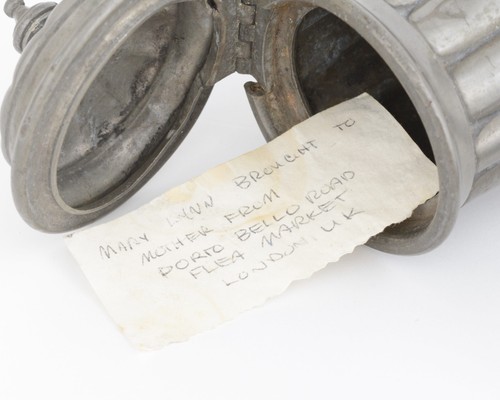 MARY LYNN BROUGHT TO
MOTHER FROM
PORTO BELLO ROAD
FLEA MARKET
LONDON, UK